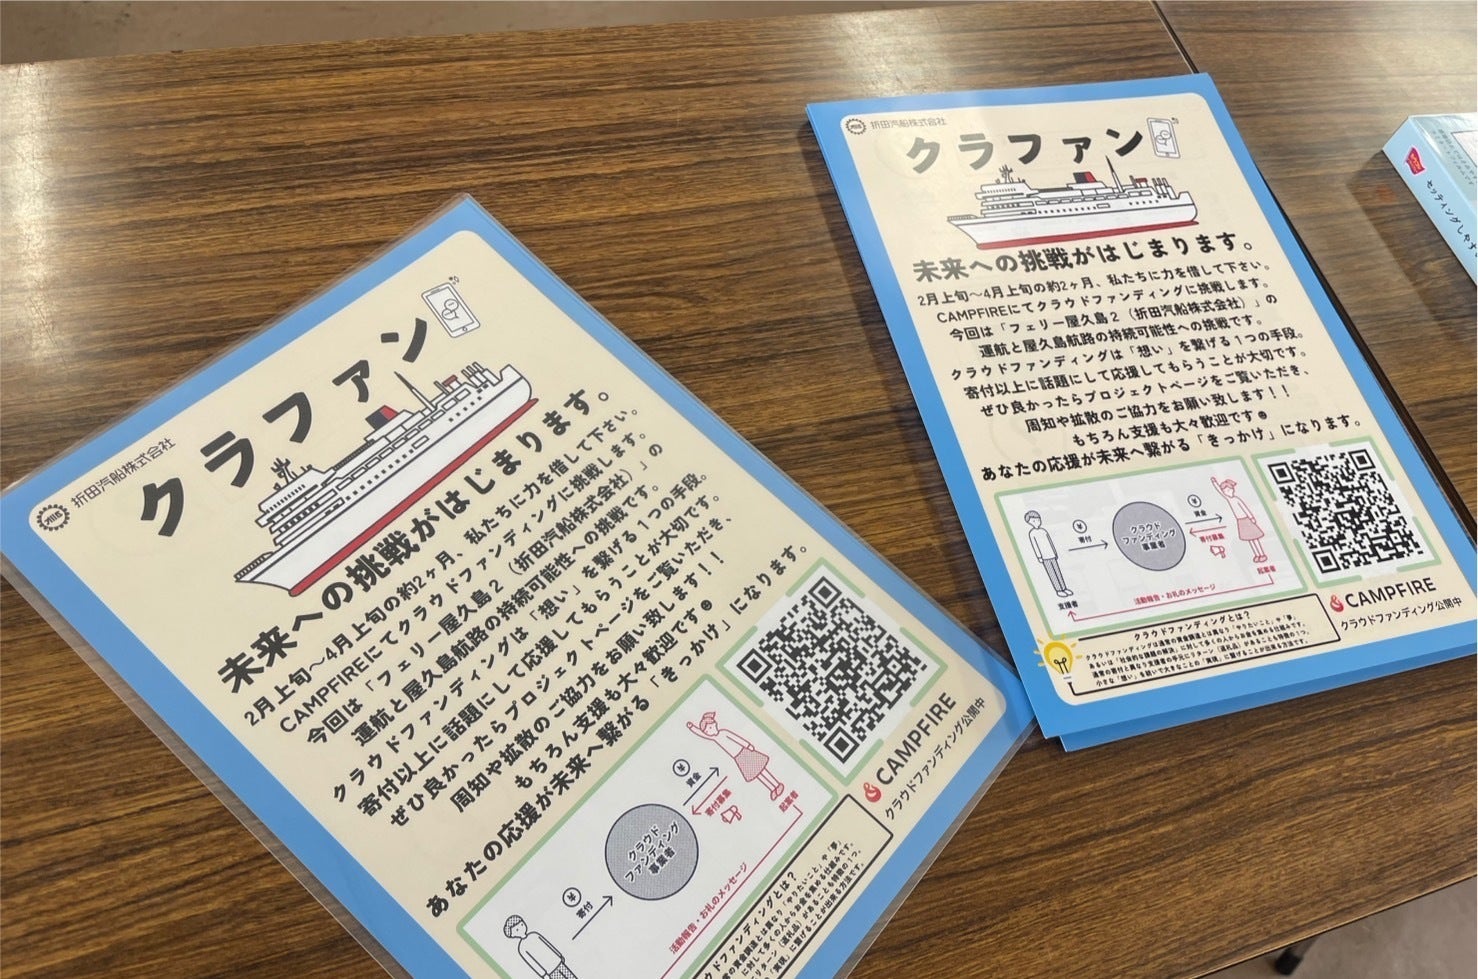 折田汽船株式会社
クラファン
未来への挑戦がはじまります。
2月上旬～4月上旬の約2ヶ月、私たちに力を借して下さい。
CAMPFIREにてクラウドファンディングに挑戦します。
今回は「フェリー屋久島2（折田汽船株式会社）」の
運航と屋久島航路の持続可能性への挑戦です。
クラウドファンディングは「想い」を繋げる1つの手段。
寄付以上に話題にして応援してもらうことが大切です。
ぜひ良かったらプロジェクトページをご覧いただき、
周知や拡散のご協力をお願い致します！！
もちろん支援も大々歓迎です
あなたの応援が未来へ繋がる「きっかけ」になります。
¥
寄付
クラウド
ファンディング
事業者
¥
資金
寄付募集
起案者
活動報告・お礼のメッセージ
CAMPFIRE
クラウドファンディング公開中
折田汽船株式会社
クラファン
未来への挑戦がはじまります。
2月上旬～4月上旬の約2ヶ月、私たちに力を借して下さい。
CAMPFIREにてクラウドファンディングに挑戦します。
今回は「フェリー屋久島2（折田汽船株式会社）」の
運航と屋久島航路の持続可能性への挑戦です。
クラウドファンディングは「想い」を繋げる1つの手段。
寄付以上に話題にして応援してもらうことが大切です。
ぜひ良かったらプロジェクトページをご覧いただき、
周知や拡散のご協力をお願い致します！！
もちろん支援も大々歓迎です
あなたの応援が未来へ繋がる「きっかけ」になります。
¥
寄付
クラウド
ファンディング
事業者
¥
資金
寄付募集
支援者
起案者
活動報告・お礼のメッセージ
CAMPFIRE
クラウドファンディング公開中
クラウドファンディングとは？
クラウドファンディングは通常の資金調達とは異なり「やりたいこと」や「夢」
あるいは「社会的な課題の解決」に対して多くの人からお金を集める仕組みです。
通常の寄付と異なり支援者の方にリターン（返礼品）があることも特徴の1つ。
小さな「想い」を紡いで大きなことの「実現」に繋げることが出来る方法です。
セッティングしやす